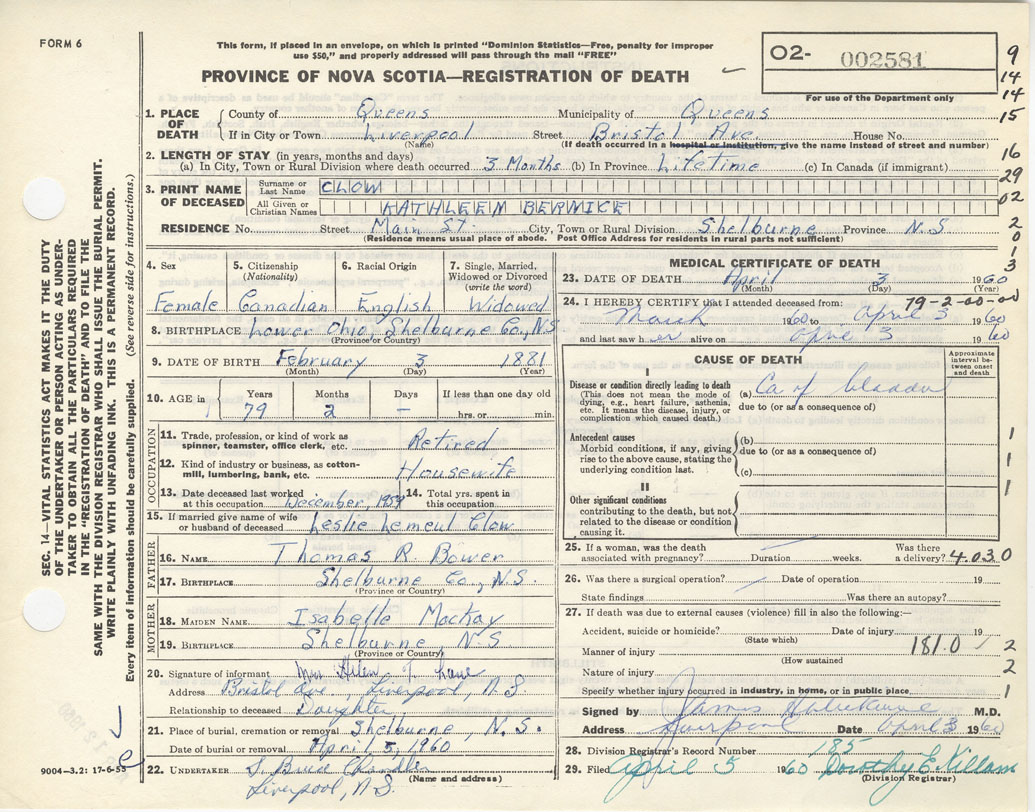 FORM 6
This form, if placed in an envelope, on which is printed "Dominion Statistics—Free, penalty for improper
use $50," and properly addressed will pass through the mail "FREE"
PROVINCE OF NOVA SCOTIA—REGISTRATION OF DEATH
O2- 002581
For use of the Department only
9
14
14
15
16
29
02
2
0
1
3
1. PLACE OF DEATH
County of Queens Municipality of Queens
If in City or Town Liverpool Street Bristol Ave. House No.
(Name) (If death occurred in a hospital or institution, give the name instead of street and number)
2. LENGTH OF STAY (in years, months and days)
(a) In City, Town or Rural Division where death occurred 3 Months (b) In Province Lifetime (c) In Canada (if immigrant)
3. PRINT NAME OF DECEASED
Surname or Last Name CLOW
All Given or Christian Names KATHLEEN BERNICE
RESIDENCE No. Street Main St. City, Town or Rural Division Shelburne Province N.S
(Residence means usual place of abode. Post Office Address for residents in rural parts not sufficient)
SEC. 14—VITAL STATISTICS ACT MAKES IT THE DUTY
OF THE UNDERTAKER OR PERSON ACTING AS UNDER-
TAKER TO OBTAIN ALL THE PARTICULARS REQUIRED
IN THE "REGISTRATION OF DEATH" AND TO FILE THE
SAME WITH THE DIVISION REGISTRAR WHO SHALL ISSUE THE BURIAL PERMIT.
WRITE PLAINLY WITH UNFADING INK. THIS IS A PERMANENT RECORD.
Every item of information should be carefully supplied. (See reverse side for instructions.)
4. Sex
Female
5. Citizenship
(Nationality)
Canadian
6. Racial Origin
English
7. Single, Married,
Widowed or Divorced
(write the word)
Widowed
8. BIRTHPLACE Lower Ohio, Shelburne Co., NS
(Province or Country)
9. DATE OF BIRTH February 3 1881
(Month) (Day) (Year)
10. AGE in
Years Months Days If less than one day old
79 2 — hrs. or min.
OCCUPATION
11. Trade, profession, or kind of work as
spinner, teamster, office clerk, etc. Retired
12. Kind of industry or business, as cotton-
mill, lumbering, bank, etc. Housewife
13. Date deceased last worked
at this occupation December, 1959
14. Total yrs. spent in
this occupation
15. If married give name of wife
or husband of deceased Leslie Lemeul Clow
FATHER
16. NAME Thomas R. Bower
17. BIRTHPLACE Shelburne Co., N.S.
(Province or Country)
MOTHER
18. MAIDEN NAME Isabelle Mackay
19. BIRTHPLACE Shelburne N S
(Province or Country)
20. Signature of informant Mrs Helen T. Lane
Address Bristol Ave., Liverpool, N.S.
Relationship to deceased Daughter.
21. Place of burial, cremation or removal Shelburne, N.S.
Date of burial or removal April 5, 1960
22. UNDERTAKER S. Bruce Chandler
(Name and address)
Liverpool, N.S.
9004-3.2: 17-6-55
MEDICAL CERTIFICATE OF DEATH
23. DATE OF DEATH April 3 1960
(Month) (Day) (Year)
24. I HEREBY CERTIFY that I attended deceased from: 79-2-00-00
March 1960 to April 3 1960
and last saw her alive on April 3 1960
CAUSE OF DEATH
Approximate
interval be-
tween onset
and death
I
Disease or condition directly leading to death
(This does not mean the mode of
dying, e.g., heart failure, asthenia,
etc. It means the disease, injury, or
complication which caused death.)
(a) Ca of bladder
due to (or as a consequence of)
Antecedent causes
Morbid conditions, if any, giving
rise to the above cause, stating the
underlying condition last.
(b)
due to (or as a consequence of)
(c)
1
1
1
II
Other significant conditions
contributing to the death, but not
related to the disease or condition
causing it.
25. If a woman, was the death
associated with pregnancy? — Duration weeks. Was there
a delivery? 4030
26. Was there a surgical operation? Date of operation 19
State findings Was there an autopsy?
27. If death was due to external causes (violence) fill in also the following:—
Accident, suicide or homicide? Date of injury 19
(State which)
Manner of injury 181.0 2
(How sustained
Nature of injury 2
Specify whether injury occurred in industry, in home, or in public place 1
Signed by James M.D.
Address Liverpool Date April 3 1960
28. Division Registrar's Record Number 185
29. Filed April 5 1960 Dorothy E. Killam
(Division Registrar)